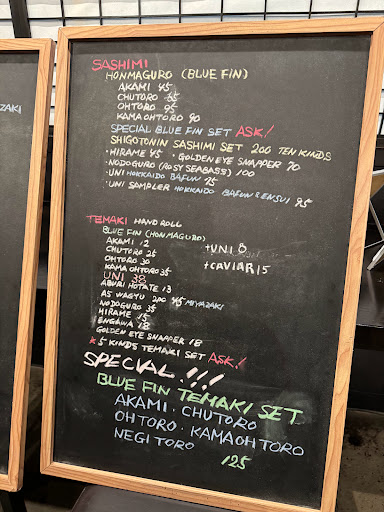 ZAKI
SASHIMI
HONMAGURO (BLUE FIN)
AKAMI 45
CHUTORO 65
OHTORO 95
KAMAOHTORO 90
SPECIAL BLUE FIN SET ASK!
SHIGOTONIN SASHIMI SET 200 TEN KINDS
・HIRAME 45 ・GOLDEN EYE SNAPPER 70
・NODOGURO (ROSY SEABASS) 100
・UNI HOKKAIDO BAFUN 75
・UNI SAMPLER HOKKAIDO BAFUN & ENSUI 95
TEMAKI HAND ROLL
BLUE FIN (HONMAGURO)
AKAMI 12 +UNI 8
CHUTORO 25
OHTORO 30 +CAVIAR 15
KAMAOHTORO 35
UNI 38
ABURI HOTATE 13
A5 WAGYU 2oz 45 MIYAZAKI
NODOGURO 35
HIRAME 15
ENGAWA 18
GOLDEN EYE SNAPPER 18
* 5 KINDS TEMAKI SET ASK!
SPECIAL!!!
BLUE FIN TEMAKI SET
AKAMI・CHUTORO
OHTORO・KAMAOHTORO
NEGITORO
125